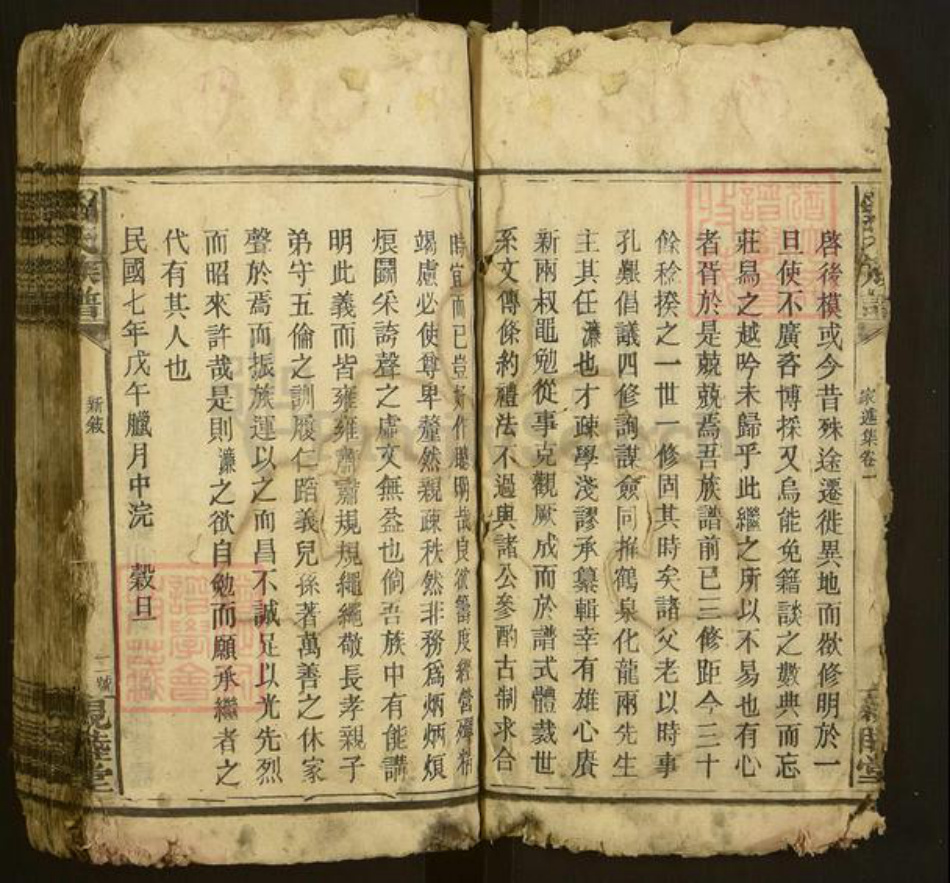 家進集卷一
啓後模或今昔殊途遷徙異地而欲修明於一
旦使不廣咨博採又烏能免籍談之數典而忘
莊舄之越吟未歸乎此繼之所以不易也有心
者胥於是兢兢焉吾族譜前已三修距今三十
餘稔揆之一世一修固其時矣諸父老以時事
孔艱倡議四修詢謀僉同推鶴泉化龍兩先生
主其任濂也才疎學淺謬承纂輯幸有雄心賡
新兩叔黽勉從事克觀厥成而於譜式體裁世
系文傳條約禮法不過與諸公參酌古制求合
時宜而已豈好作聰明哉良欲籌度經營殫精
竭慮必使尊卑釐然親疎秩然非務爲炳炳烺
烺鬬釆誇聲之虛文無益也倘吾族中有能講
明此義而皆雍雍肅肅規規繩繩敬長孝親子
弟守五倫之訓履仁蹈義兒孫著萬善之休家
聲於焉而振族運以之而昌不誠足以光先烈
而昭來許哉是則濂之欲自勉而願承繼者之
代有其人也
民國七年戊午臘月中浣 穀旦
族譜
新敘
一號
睦堂